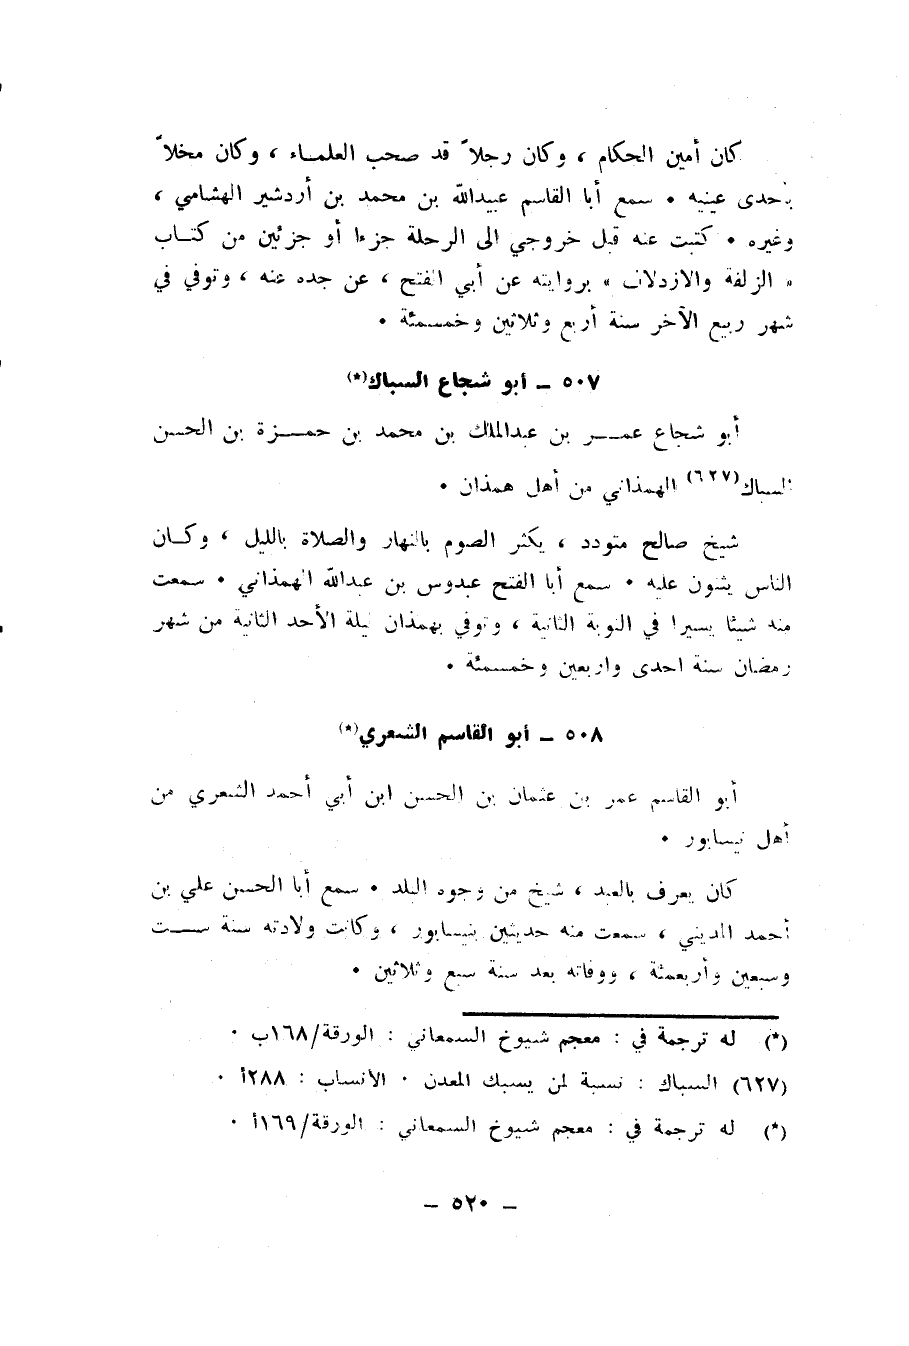 كان أمين الحكام ، وكان رجلاً قد صحب العلمـاء ، وكان مخلاً
بأحدى عينيه . سمع أبا القاسم عبيدالله بن محمد بن أردشير الهشامي ،
وغيره . كتبت عنه قبل خروجي الى الرحلة جزءا أو جزئين من كتـاب
« الزلفة والازدلاف » بروايته عن أبي الفتح ، عن جده عنه ، وتوفي في
شهر ربيع الآخر سنة أربع وثلاثين وخمسمئة .
٥٠٧ ـ أبو شجاع السباك(*)
أبو شجاع عمـــر بن عبدالملك بن محمد بن حمـــزة بن الحسن
السباك(٦٢٧) الهمذاني من أهل همذان .
شيخ صالح متودد ، يكثر الصوم بالنهار والصلاة بالليل ، وكـان
الناس يثنون عليه . سمع أبا الفتح عبدوس بن عبدالله الهمذاني . سمعت
منه شيئا يسيرا في النوبة الثانية ، وتوفي بهمذان ليلة الأحد الثانية من شهر
رمضان سنة احدى واربعين وخمسمئة .
٥٠٨ ـ أبو القاسم الشعري(*)
أبو القاسم عمر بن عثمان بن الحسن ابن أبي أحمد الشعري من
أهل نيسابور .
كان يعرف بالعبد ، شيخ من وجوه البلد . سمع أبا الحسن علي بن
أحمد المديني ، سمعت منه حديثين بنيسابور ، وكانت ولادته سنة ســـت
وسبعين وأربعمئة ، ووفاته بعد سنة سبع وثلاثين .
(*) له ترجمة في : معجم شيوخ السمعاني : الورقة/١٦٨ب .
(٦٢٧) السباك : نسبة لمن يسبك المعدن . الأنساب : ٢٨٨أ .
(*) له ترجمة في : معجم شيوخ السمعاني : الورقة/١٦٩أ .
ـ ٥٢٠ ـ